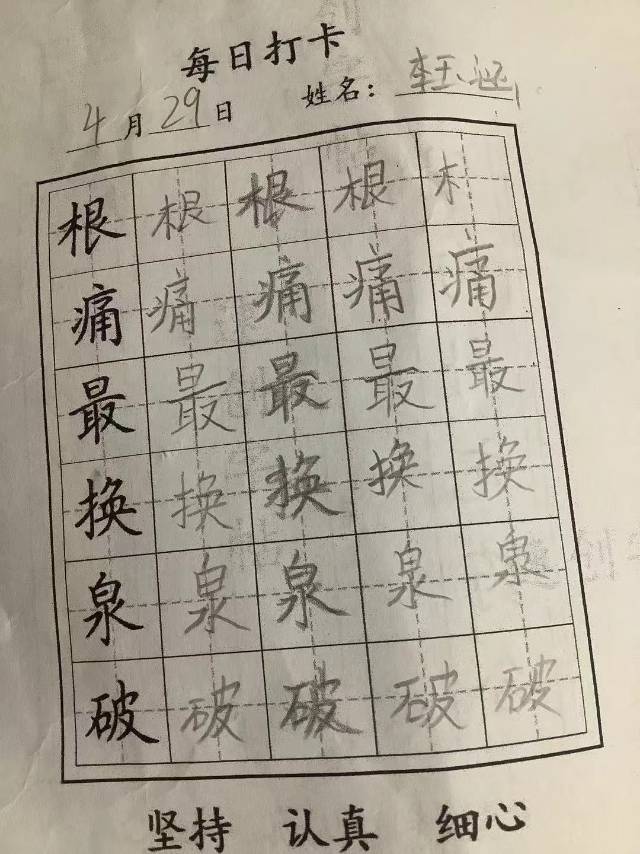 每日打卡
4月29日 姓名：李玉涵
根 根 根 根 木
痛 痛 痛 痛 痛
最 最 最 最 最
换 换 换 换 换
泉 泉 泉 泉 泉
破 破 破 破 破
坚持 认真 细心